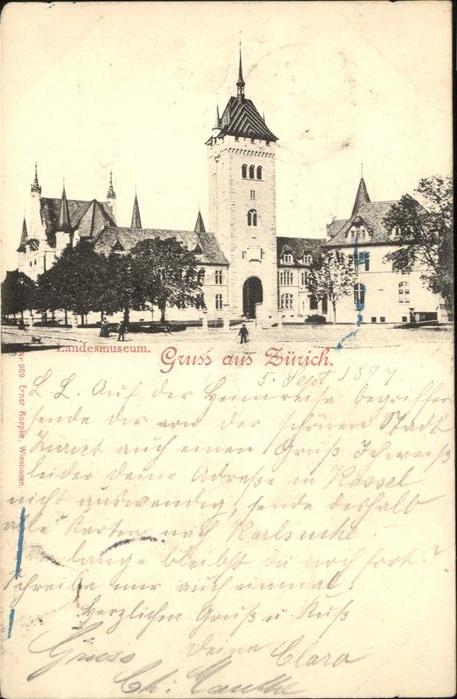 Landesmuseum.
Gruss aus Zürich.
Nr. 969 Ernst Roepke, Wiesbaden.
5. Sept. 1897
L. L. Auf der Heimreise begriffen
sende dir von der schönen Stadt
auch einen Gruß
leider deine Adresse in Kassel
nicht auswendig, sende deshalb
alle Karten nach Karlsruhe.
lange bleibst du noch fort?
Schreibe mir auch einmal.
Herzlichen Gruß u. Kuß
deine Clara
Gruss